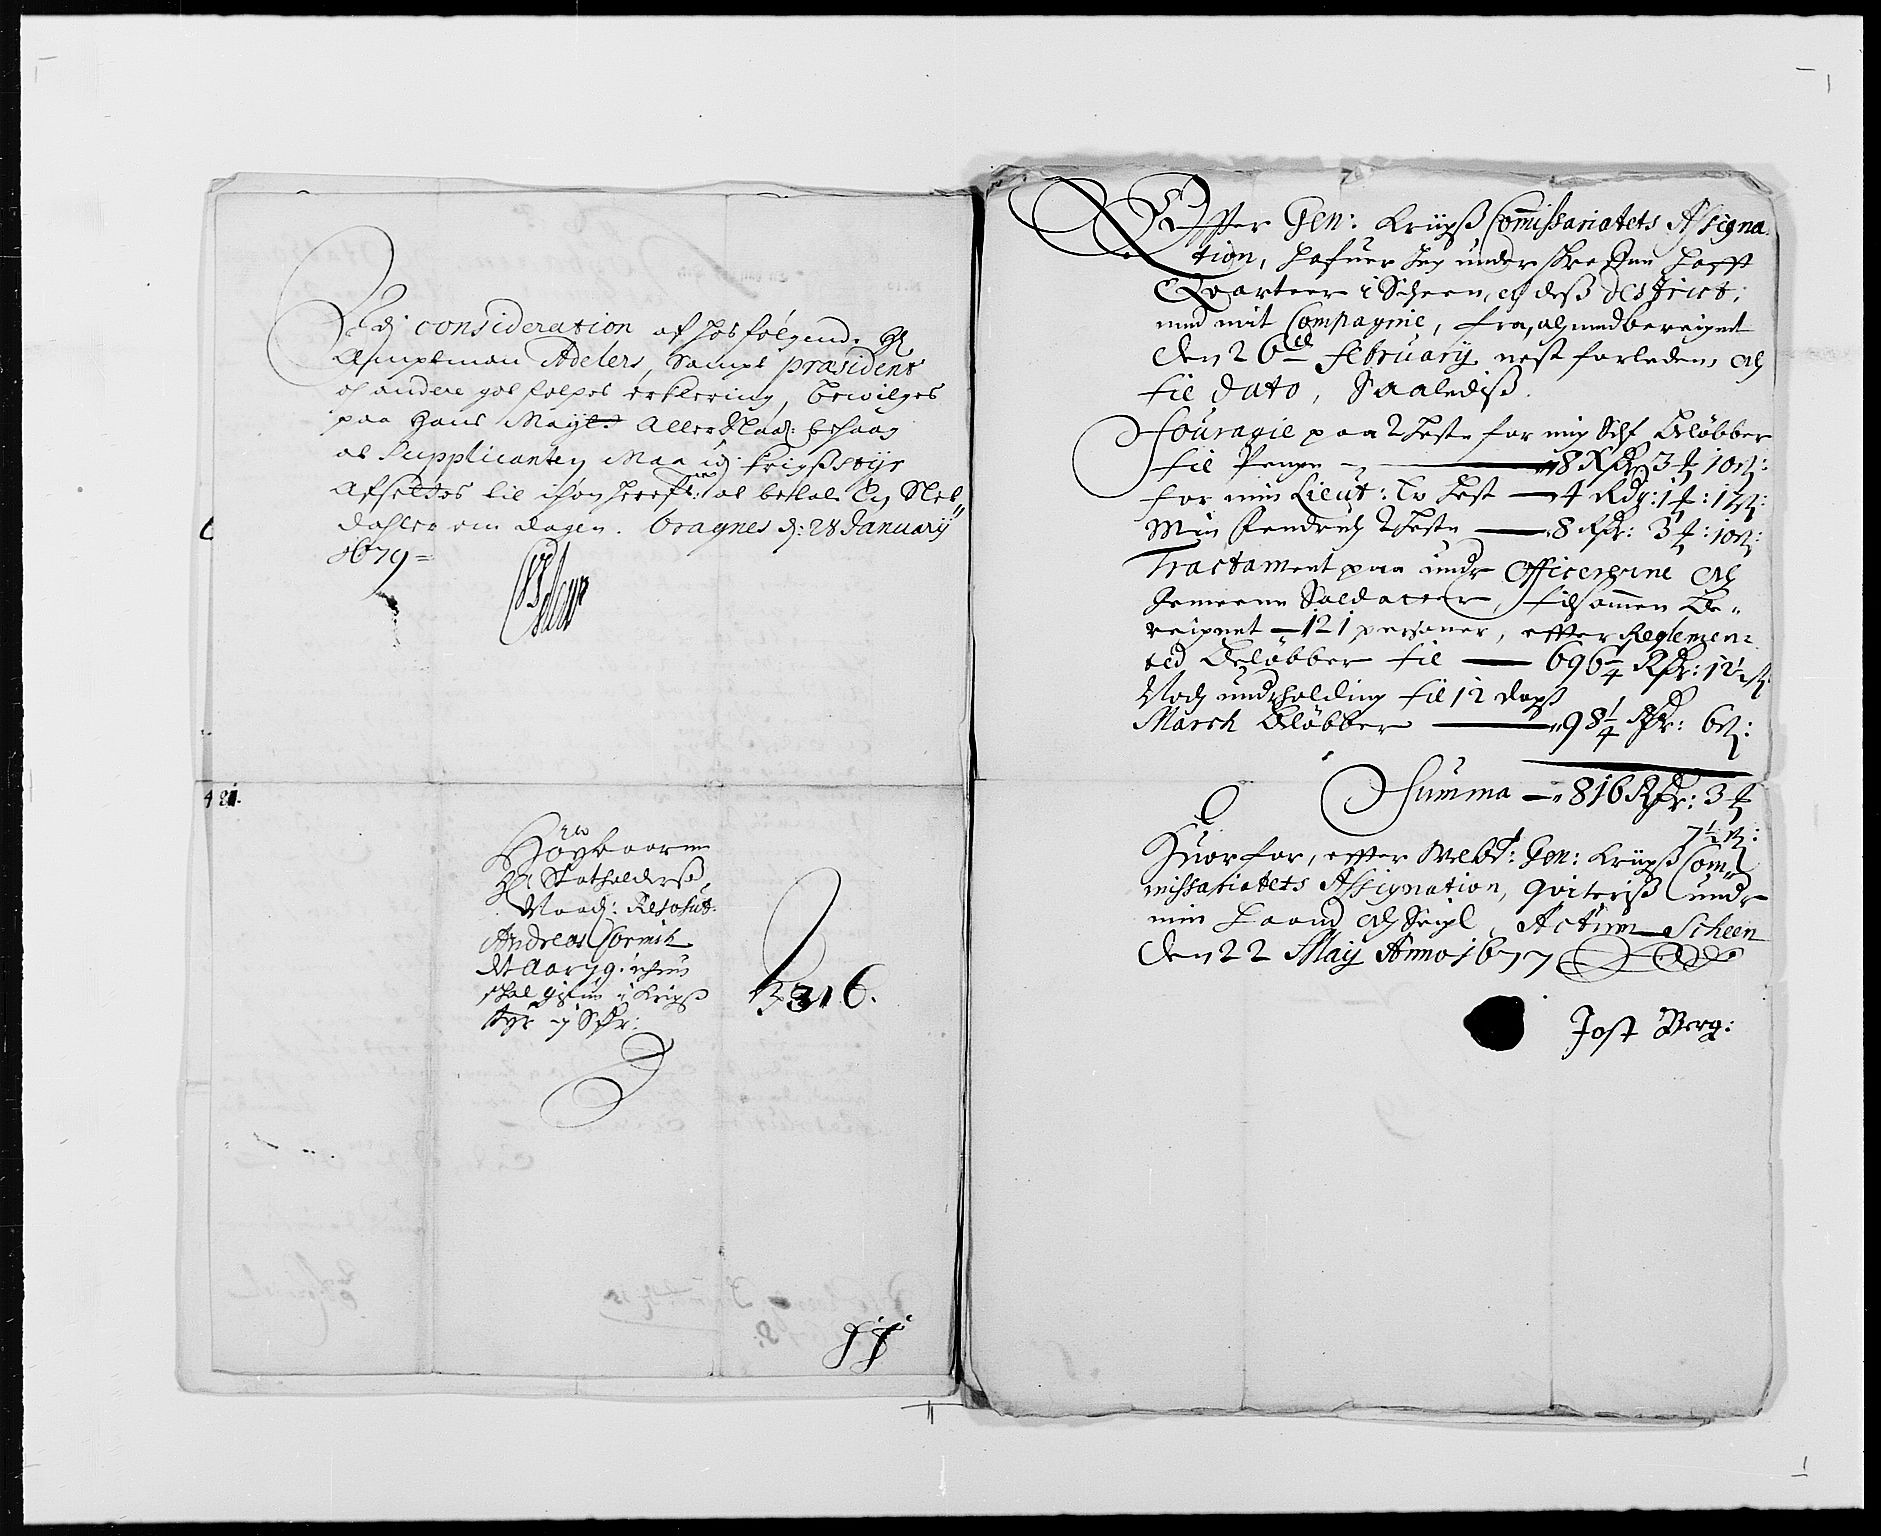 Udj consideration af hosfølgende Hr
Amptmand Adelers, sampt præsident
og andre got folckes erklering, bevilges
paa Hans Mayts Allernaad: behaag
at Supplicanten Maa udj Krigsstyr
afsettes til ighon herefter at betale En Slet
dahler om dagen. Bragnes d: 28 January
1679=
481.
Höybaarne
Hr Statholderß
Naad: Resolut:
Andreas Cormich
skal gifue i Krigß
styr
No 316.
Effter Gen: Krigß Commissariatets Assigna
tion, hafuer Jeg underskrefne hafft
Quarteer i Scheen, og deß District,
med mit Compagnie, fra, og medberegnet
den 26de February nest forleden, og
til dato, Saalediß.
Fouragie paa 2 Heste for mig Self beløbber
til Penge — 8 Rdr 3 ort 10 s:
for min Lieut: En Hest — 4 Rdr: 1 ort: 17 s:
Min Fendrich 2 Heste — 8 Rdr: 3 ort: 10 s:
Tractament paa under Officererne og
Gemeene Soldatter, tilsammen be-
reignet — 121 personer, effter Reglemen-
ted beløbber til — 696 1/4 Rdr: 12 s:
Noch underholding til 12 dagß
March beløbber — 98 1/4 Rdr: 6 s:
Summa — 816 Rdr: 3 ort
7 1/2 s:
Huorfor, effter Welbt: Gen: Krigß Com
missariatets Assignation, qviteriß under
min Haand og Seigl, Actum Scheen
den 22 May Anno 1677
Jost Berg: